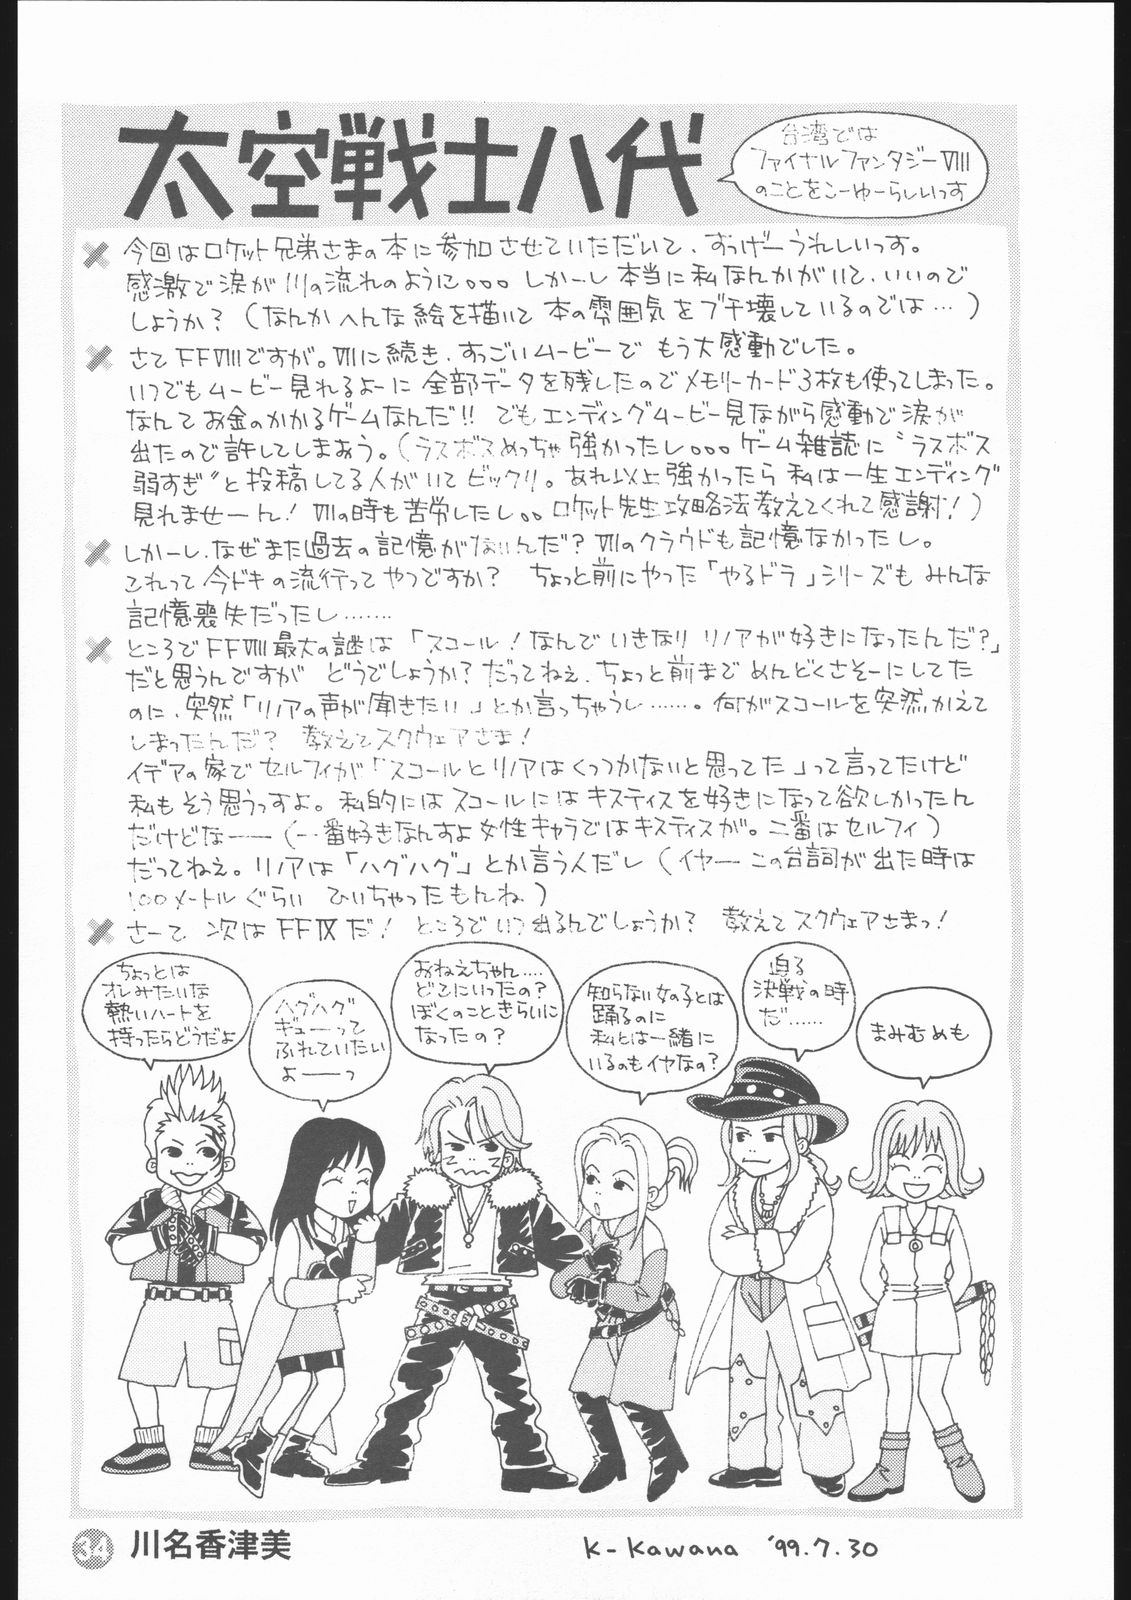 太空戦士八代
台湾では
ファイナルファンタジーⅧ
のことをこーゆーらしいっす
今回はロケット兄弟さまの本に参加させていただいて、すっげーうれしいっす。
感激で涙が川の流れのように。。。しかーし本当に私なんかがいて、いいので
しょうか?(なんかへんな絵を描いて本の雰囲気をブチ壊しているのでは…)
さてFFⅧですが。Ⅶに続き、すっごいムービーでもう大感動でした。
いつでもムービー見れるよーに全部データを残したのでメモリーカード3枚も使ってしまった。
なんてお金のかかるゲームなんだ!!でもエンディングムービー見ながら感動で涙が
出たので許してしまおう。(ラスボスめっちゃ強かったし。。。ゲーム雑誌に“ラスボス
弱すぎ”と投稿してる人がいてビックリ。あれ以上強かったら私は一生エンディング
見れませーん!Ⅶの時も苦労したし。。ロケット先生攻略法教えてくれて感謝!)
しかーし、なぜまた過去の記憶がないんだ?Ⅶのクラウドも記憶なかったし。
これって今ドキの流行ってやつですか?ちょっと前にやった「やるドラ」シリーズもみんな
記憶喪失だったし……
ところでFFⅧ最大の謎は「スコール!なんでいきなりリノアが好きになったんだ?」
だと思うんですがどうでしょうか?だってねぇ、ちょっと前までめんどくさそーにしてた
のに、突然「リノアの声が聞きたい」とか言っちゃうし……。何がスコールを突然かえて
しまったんだ?教えてスクウェアさま!
イデアの家でセルフィが「スコールとリノアはくっつかないと思ってた」って言ってたけど
私もそう思うっすよ。私的にはスコールにはキスティスを好きになって欲しかったん
だけどなーー(一番好きなんすよ女性キャラではキスティスが。二番はセルフィ)
だってねぇ。リノアは「ハグハグ」とか言う人だし(イヤーこの台詞が出た時は
100メートルぐらいひいちゃったもんね)
さーて次はFFⅨだ!ところでいつ出るんでしょうか?教えてスクウェアさまっ!
ちょっとは
オレみたいな
熱いハートを
持ったらどうだよ
ハグハグ
ギューって
ふれていたい
よーーっ
おねえちゃん……
どこにいったの?
ぼくのこときらいに
なったの?
知らない女の子とは
踊るのに
私とは一緒に
いるのもイヤなの?
迫る
決戦の時
だ……
まみむめも
34
川名香津美
K-Kawana '99.7.30